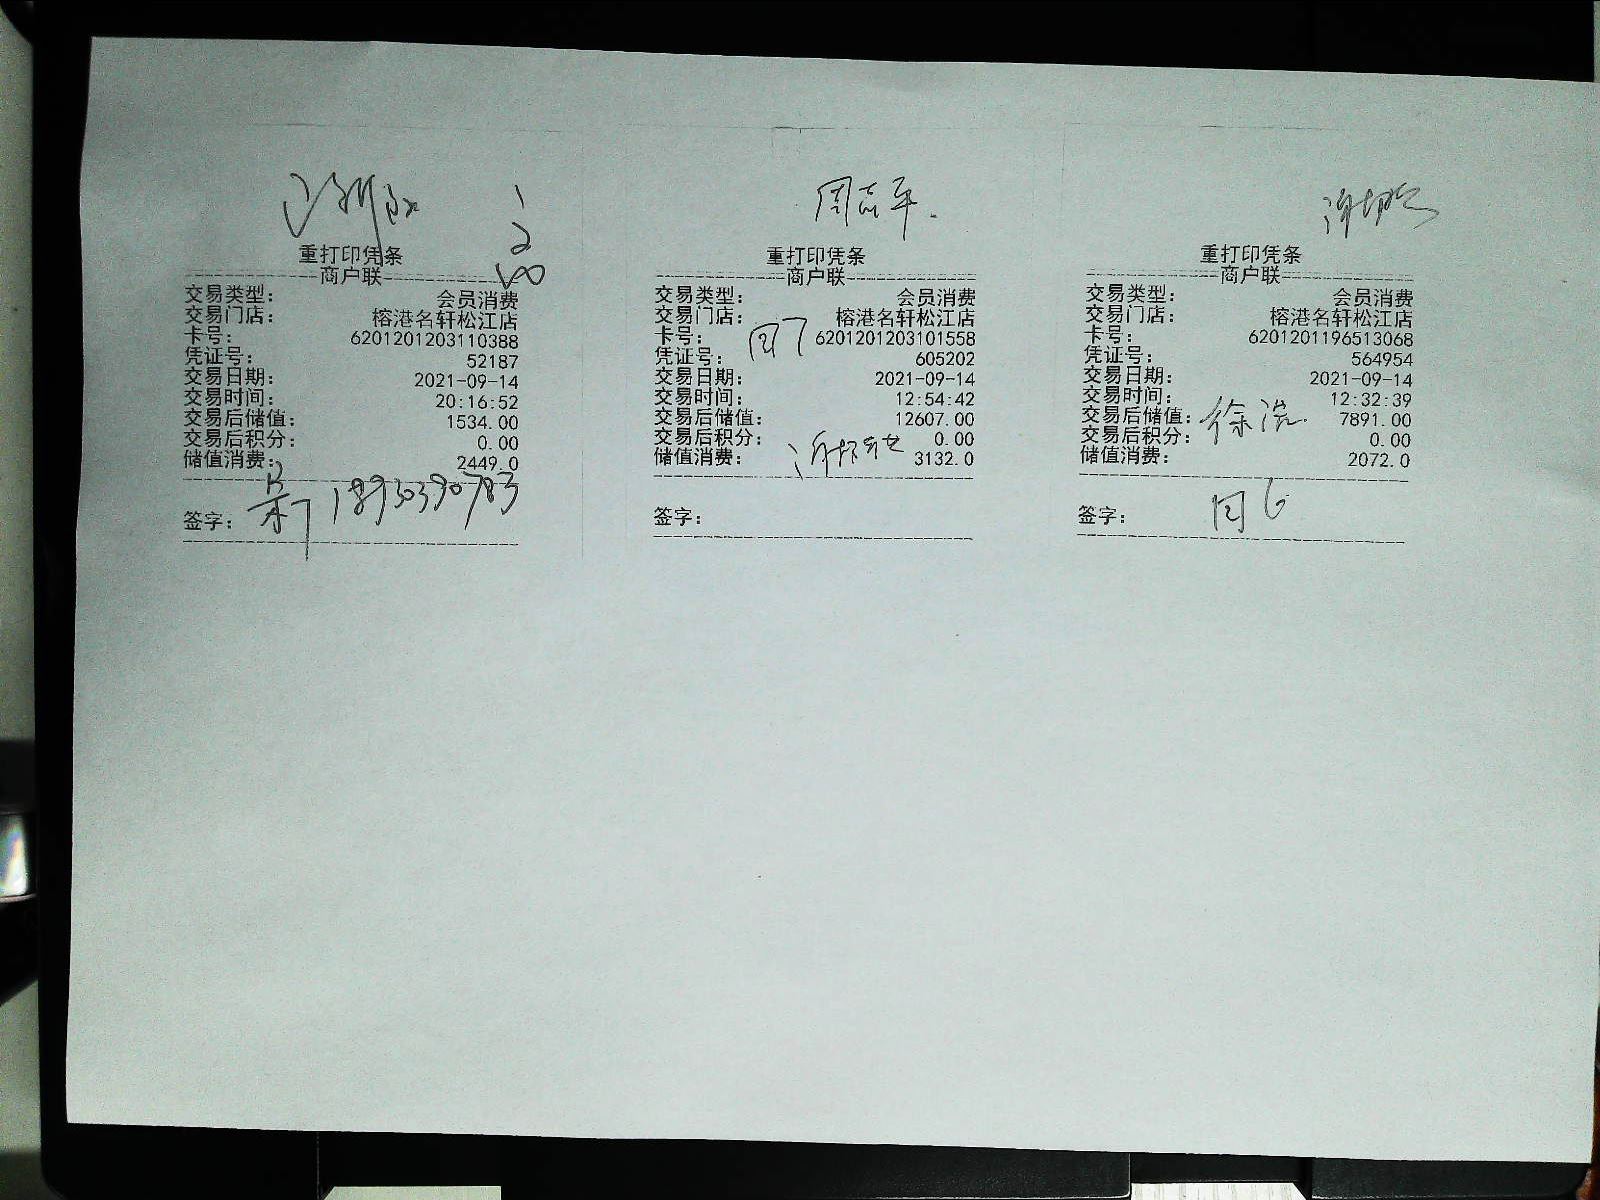 重打印凭条
商户联
交易类型: 会员消费
交易门店: 榕港名轩松江店
卡号: 6201201203110388
凭证号: 52187
交易日期: 2021-09-14
交易时间: 20:16:52
交易后储值: 1534.00
交易后积分: 0.00
储值消费: 2449.0
签字: 18930390783
周志平.
重打印凭条
商户联
交易类型: 会员消费
交易门店: 榕港名轩松江店
卡号: 6201201203101558
凭证号: 605202
交易日期: 2021-09-14
交易时间: 12:54:42
交易后储值: 12607.00
交易后积分: 0.00
储值消费: 3132.0
签字:
重打印凭条
商户联
交易类型: 会员消费
交易门店: 榕港名轩松江店
卡号: 6201201196513068
凭证号: 564954
交易日期: 2021-09-14
交易时间: 12:32:39
交易后储值: 7891.00
交易后积分: 0.00
储值消费: 2072.0
签字: